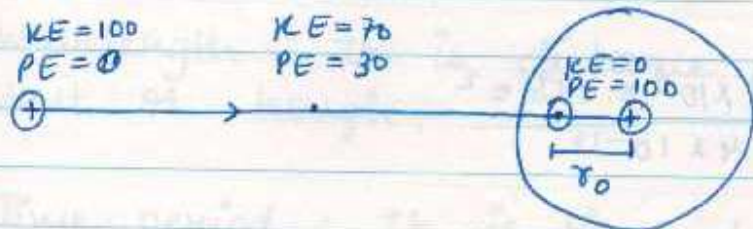 KE=100 KE=70
PE=0 PE=30 KE=0
PE=100
+ +
r₀